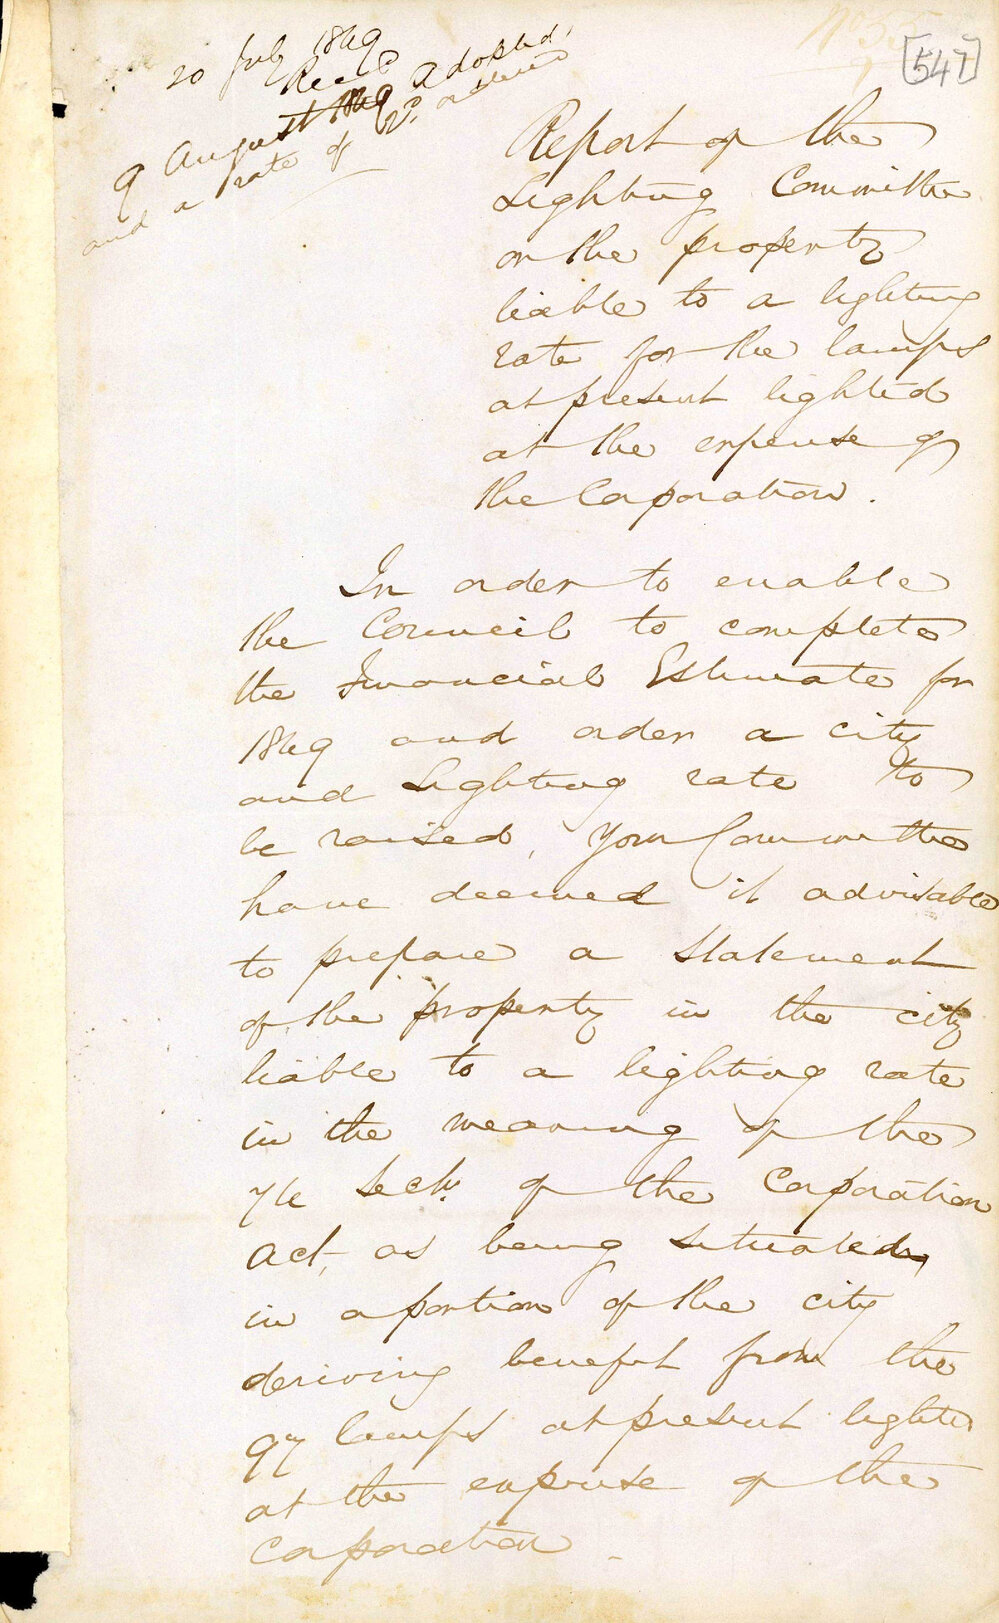 No 55
[547]
20 July 1849
Recd
9 August 1849 adopted,
and a rate of 2d. ordered
Report of the
Lighting Committee
on the property
liable to a lighting
rate for the lamps
at present lighted
at the expense of
the Corporation.
In order to enable
the Council to complete
the Financial Estimate for
1849 and order a city
and Lighting rate to
be raised, Your Committee
have deemed it advisable
to prepare a statement
of the property in the city
liable to a lighting rate
in the meaning of the
74 Sectn. of the Corporation
Act, as being situated,
in a portion of the city
deriving benefit from the
97 lamps at present lighted
at the expense of the
Corporation.